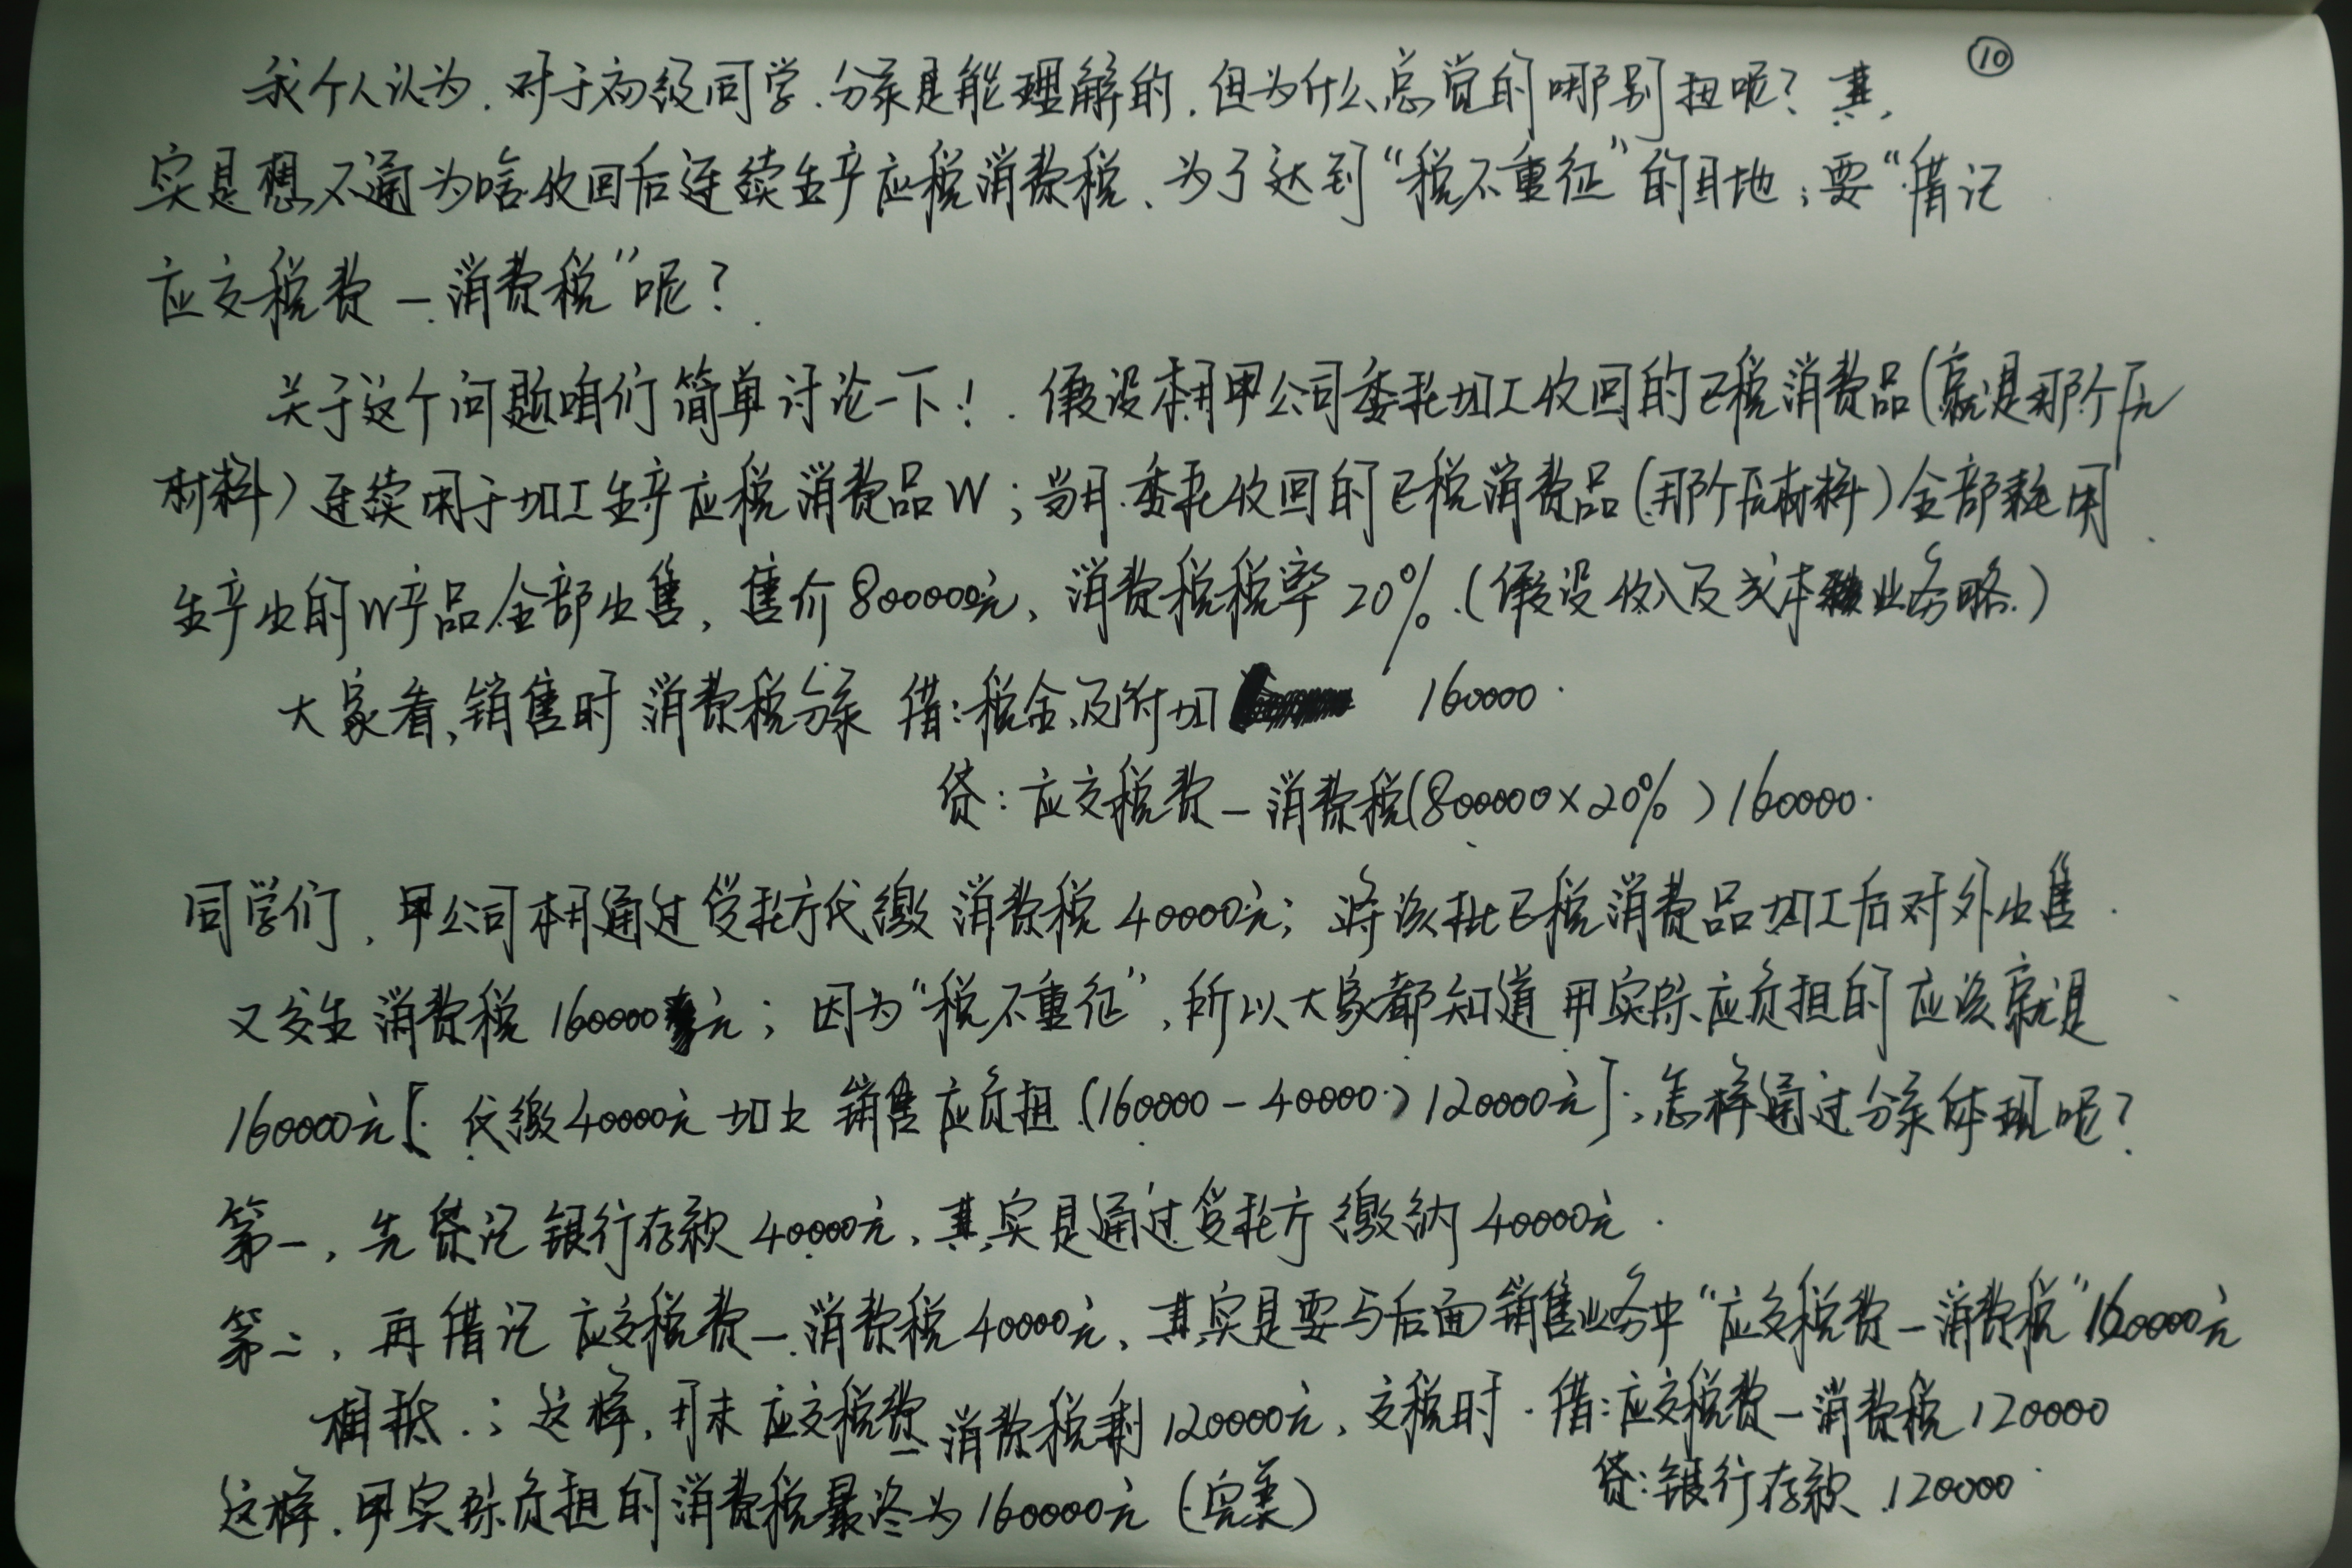 ⑩
我个人认为.对于初级同学.分录是能理解的.但为什么总觉的哪别扭呢?其
实是想不通为啥收回后连续生产应税消费税、为了达到“税不重征”的目地;要“借记
应交税费—消费税”呢?
关于这个问题咱们简单讨论一下!.假设本月甲公司委托加工收回的已税消费品(就是那个原
材料)连续用于加工生产应税消费品W;当月委托收回的已税消费品(那个原材料)全部耗用
生产出的W产品全部出售,售价800000元,消费税税率20%.(假设收入及成本业务略.)
大家看,销售时消费税分录 借:税金及附加 160000.
贷:应交税费—消费税(800000×20%)160000.
同学们,甲公司本月通过受托方代缴消费税40000元;将该批已税消费品加工后对外出售
又发生消费税160000元;因为“税不重征”,所以大家都知道甲实际应负担的应该就是
160000元[代缴40000元加上销售应负担(160000-40000)120000元];怎样通过分录体现呢?
第一,先贷记银行存款40000元,其实是通过受托方缴纳40000元.
第二,再借记应交税费—消费税40000元,其实是要与后面销售业务中“应交税费—消费税”160000元
相抵.;这样,月末应交税费—消费税剩120000元,交税时.借:应交税费—消费税120000
贷:银行存款 120000.
这样.甲实际负担的消费税最终为160000元(完美)